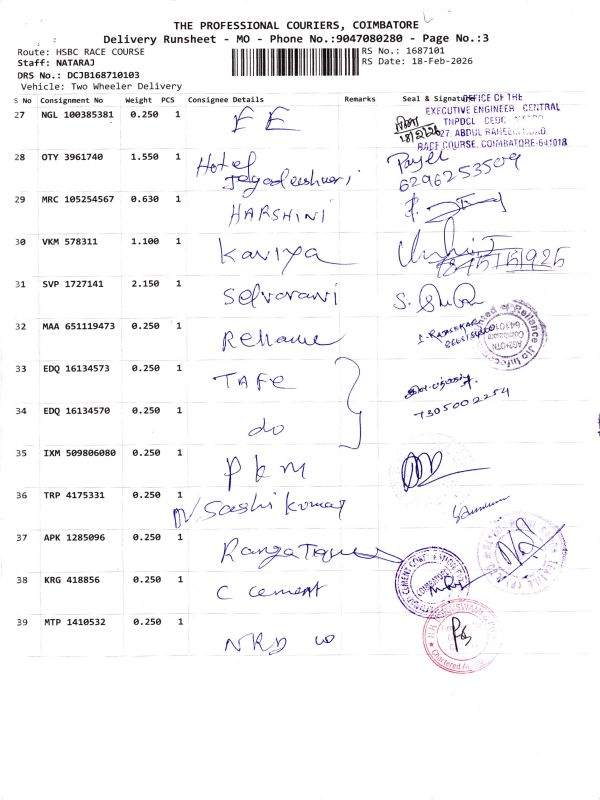 THE PROFESSIONAL COURIERS, COIMBATORE
Delivery Runsheet - MO - Phone No.:9047080280 - Page No.:3
Route: HSBC RACE COURSE
RS No.: 1687101
Staff: NATARAJ
RS Date: 18-Feb-2026
DRS No.: DCJB168710103
Vehicle: Two Wheeler Delivery
S No Consignment No Weight PCS Consignee Details Remarks Seal & Signature
OFFICE OF THE
EXECUTIVE ENGINEER CENTRAL
27 NGL 100385381 0.250 1 E E
27, ABDUL RAHEEM ROAD
RACE COURSE, COIMBATORE-641018
18/2/26
28 OTY 3961740 1.550 1 Hotel
6296253509
29 MRC 105254567 0.630 1 HARSHINI
30 VKM 578311 1.100 1 Kaviya
31 SVP 1727141 2.150 1 Selvarani
32 MAA 651119473 0.250 1 Reliance
33 EDQ 16134573 0.250 1 TAFE
7305002254
34 EDQ 16134570 0.250 1 do
35 IXM 509806080 0.250 1 PKM
36 TRP 4175331 0.250 1 Sashi Kumar
37 APK 1285096 0.250 1
38 KRG 418856 0.250 1 C cement
39 MTP 1410532 0.250 1 NRD